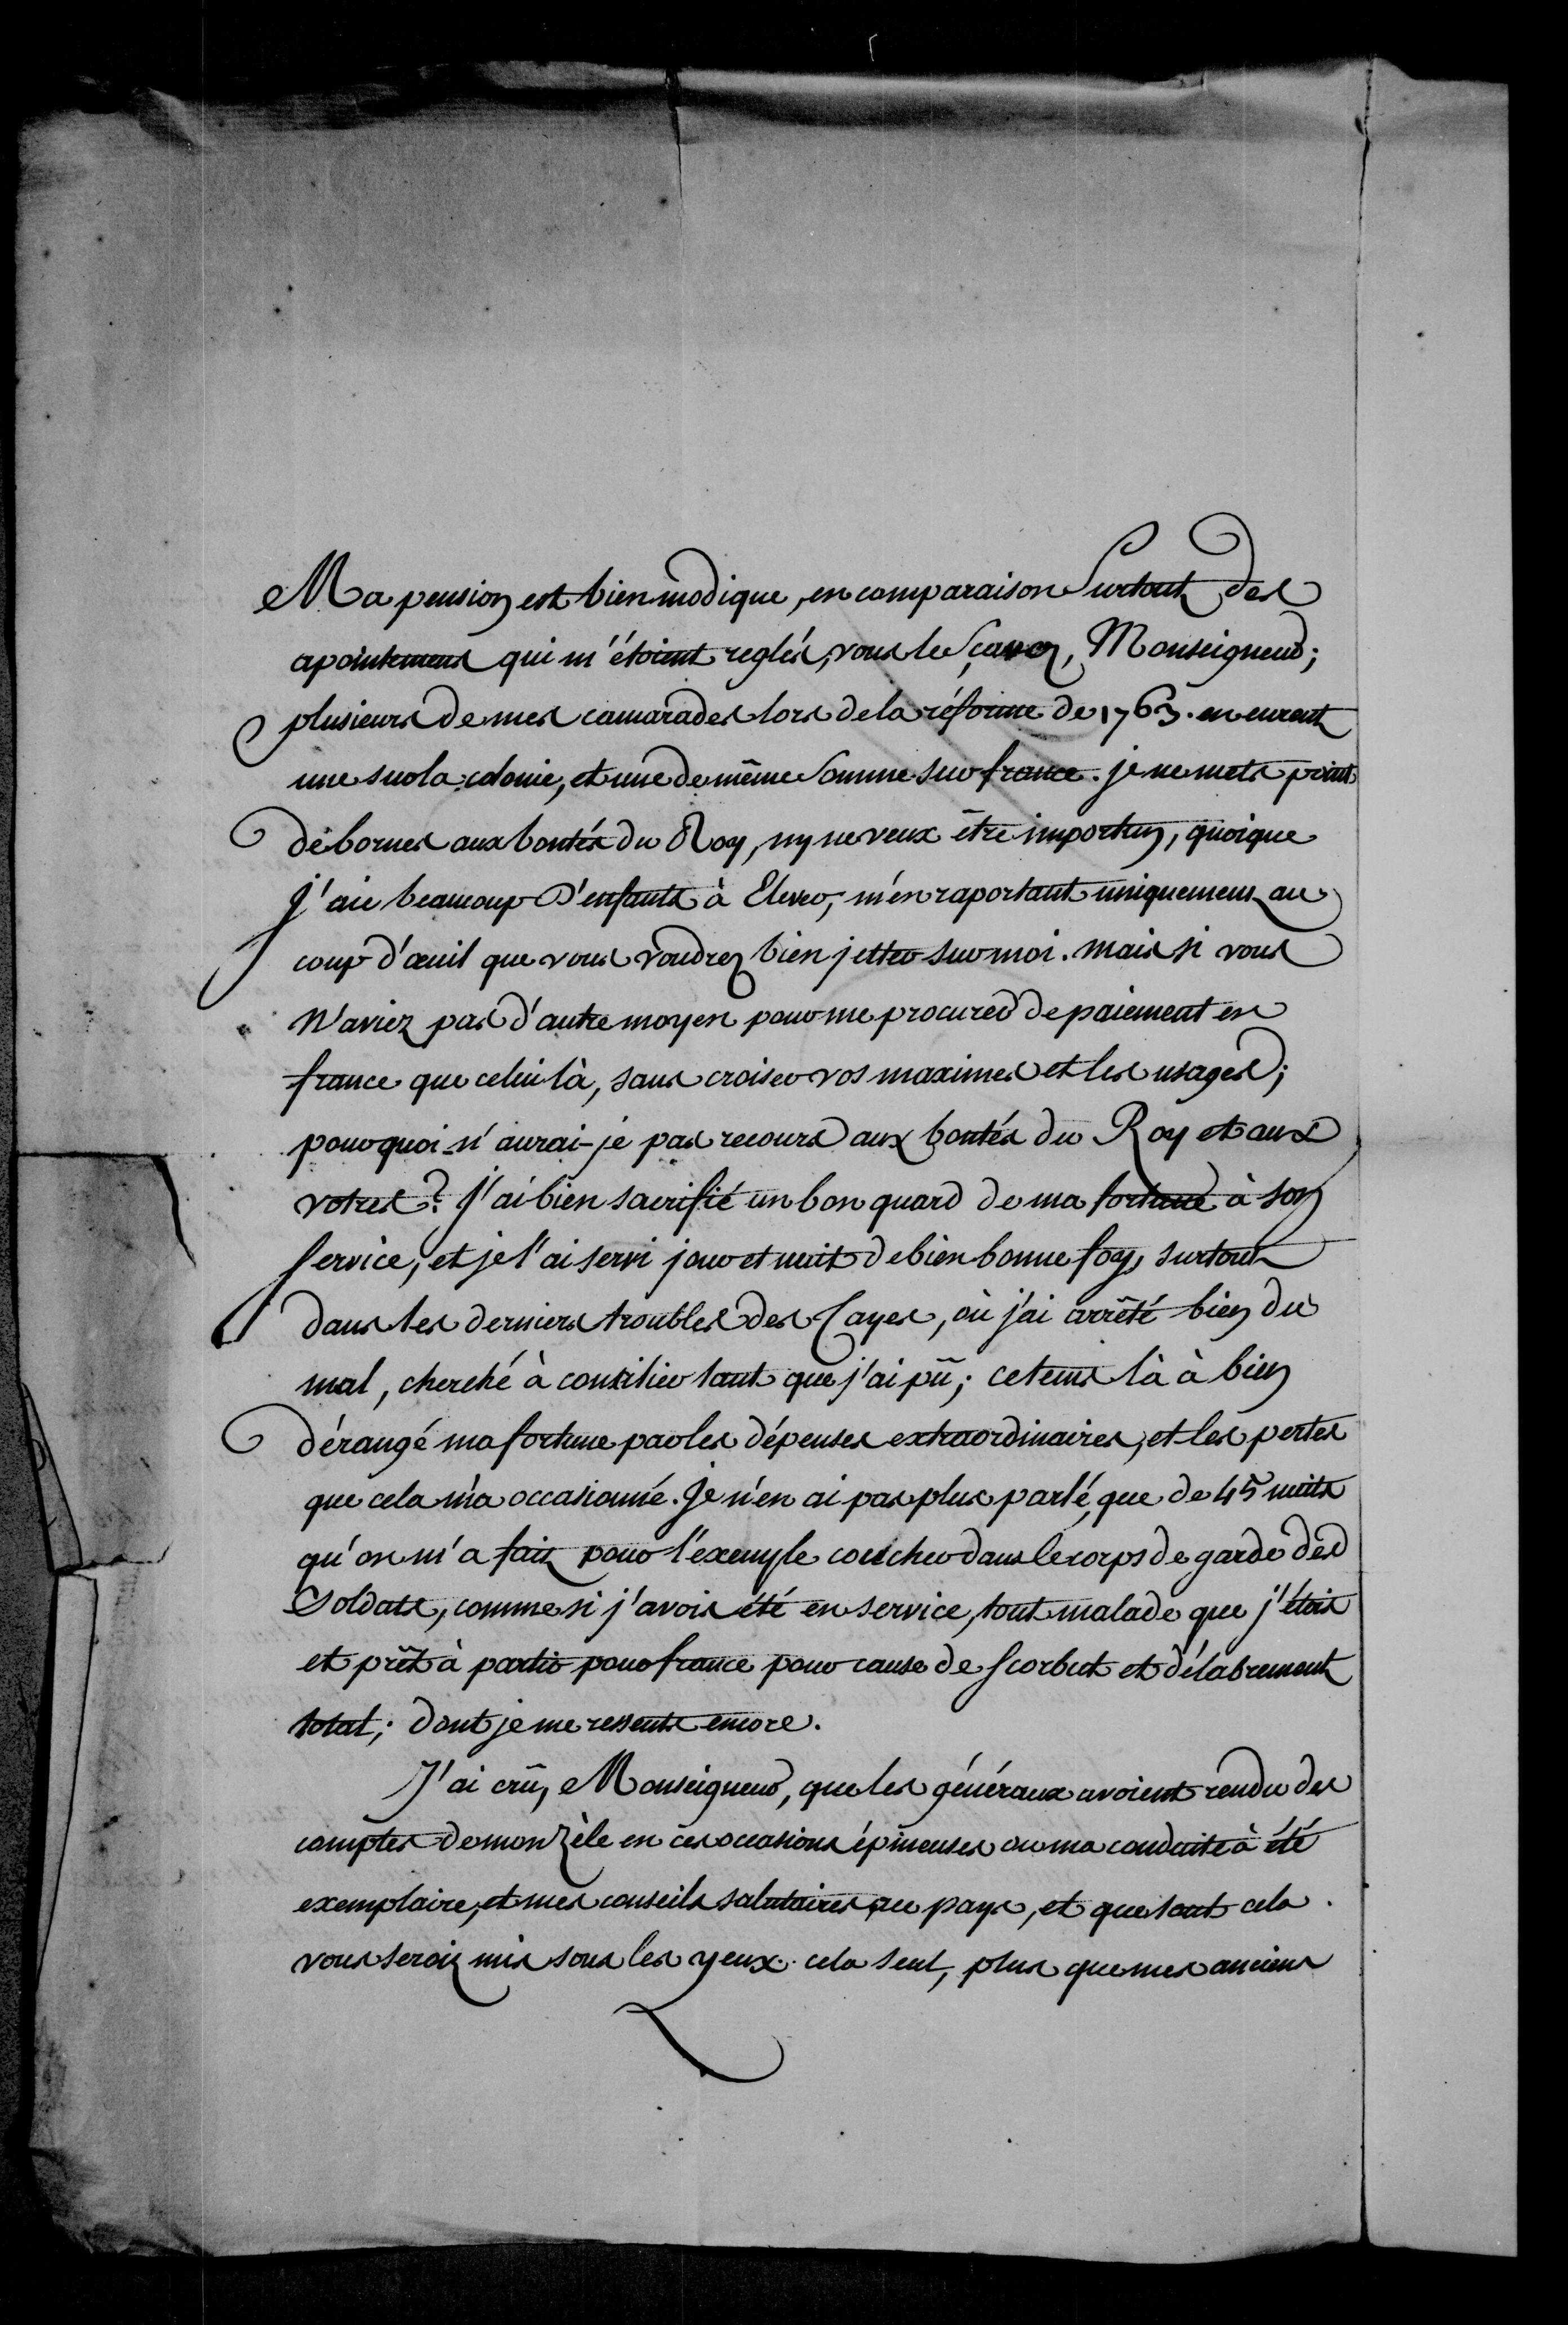 Ma pension est bien modique, en comparaison Surtout des
apointemens qui m'étoient reglés, vous le Sçavez, Monseigneur;
plusieurs de mes camarades lors de la réforme de 1763. en eurent
une sur la colonie, et une de même Somme sur france. je ne mets point
de bornes aux bontés du Roy, ny ne veux être importun, quoique
J'aie beaucoup d'enfants à Elever, m'en raportant uniquement au
coup d'œuil que vous voudrez bien jetter sur moi. mais si vous
N'aviez pas d'autre moyen pour me procurer de paiement en
france que celui là, sans croiser vos maximes et les usages;
pourquoi n'aurai-je pas recours aux bontés du Roy et aux
votres? J'ai bien sacrifié un bon quard de ma fortune à son
Service, et je l'ai servi jour et nuit de bien bonne foy, surtout
dans les derniers troubles des Cayes, où j'ai arrêté bien du
mal, cherché à consilier tant que j'ai pû; cetems là à bien
dérangé ma fortune par les dépenses extraordinaires, et les pertes
que cela m'a occasionné. Je n'en ai pas plus parlé, que de 45 nuits
qu'on m'a fait pour l'exemple coucher dans le corps de garde des
Soldats, comme si j'avois été en service, tout malade que j'étois
et prêt à partir pour france pour cause de Scorbut et délabrement
total; dont je me ressents encore.
J'ai crû, Monseigneur, que les généraux avoient rendu des
comptes de mon zèle en ces occasions épineuses ou ma conduite à été
exemplaire, et mes conseils salutaires au pays, et que tout cela
vous seroit mis sous les yeux. cela seul, plus que mes anciens